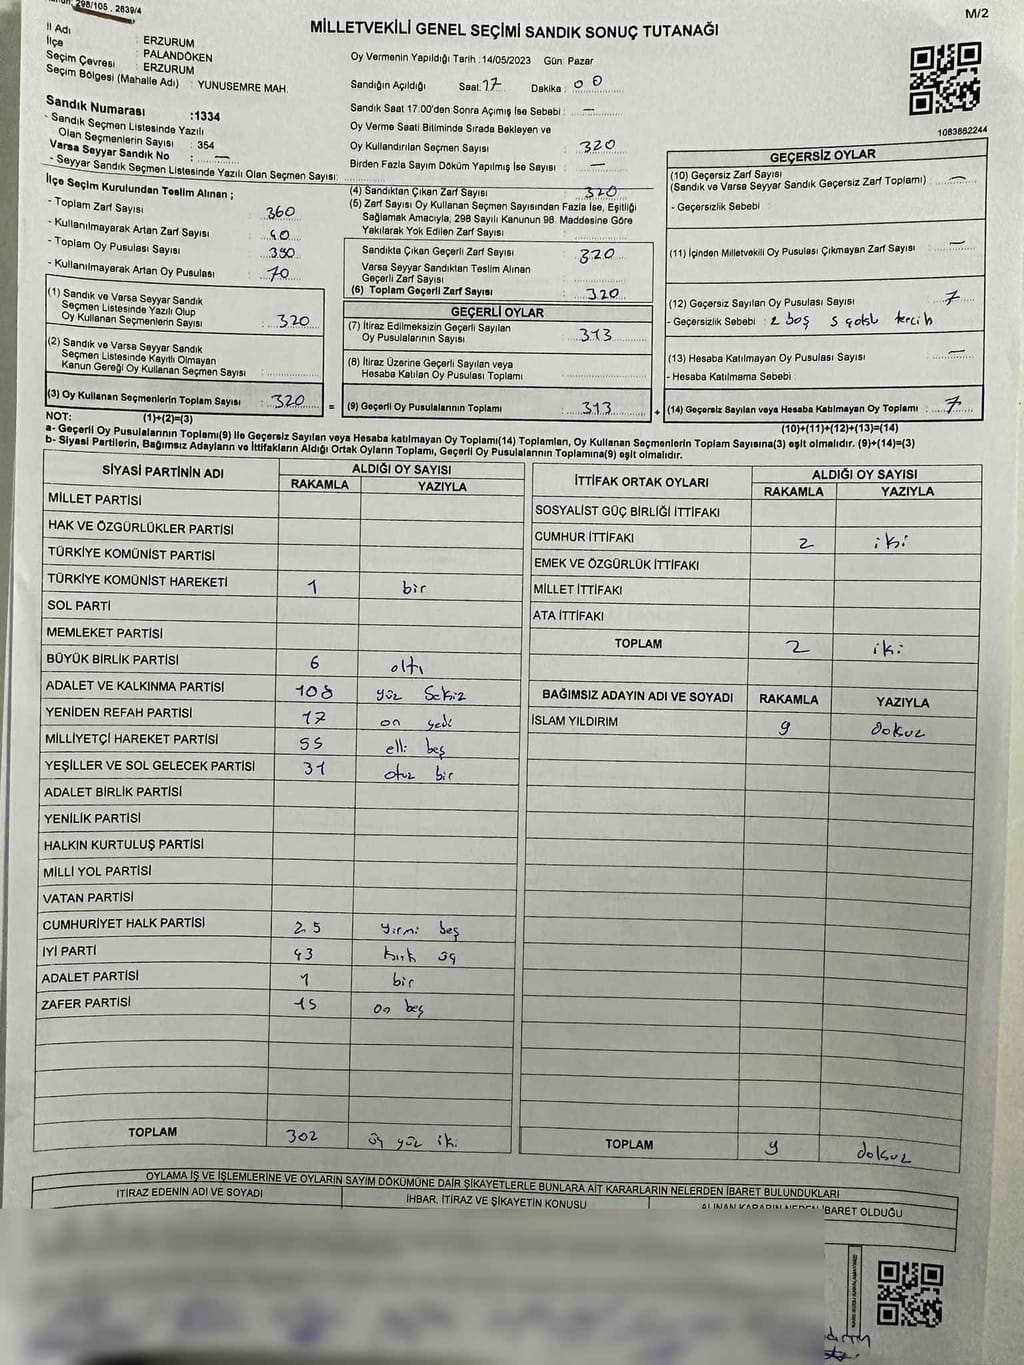 298/105, 2839/4
M/2
MİLLETVEKİLİ GENEL SEÇİMİ SANDIK SONUÇ TUTANAĞI
İl Adı : ERZURUM
İlçe : PALANDÖKEN
Seçim Çevresi : ERZURUM
Seçim Bölgesi (Mahalle Adı) : YUNUSEMRE MAH.
Sandık Numarası :1334
- Sandık Seçmen Listesinde Yazılı
Olan Seçmenlerin Sayısı : 354
Varsa Seyyar Sandık No : —
- Seyyar Sandık Seçmen Listesinde Yazılı Olan Seçmen Sayısı:
İlçe Seçim Kurulundan Teslim Alınan ;
- Toplam Zarf Sayısı : 360
- Kullanılmayarak Artan Zarf Sayısı : 40
- Toplam Oy Pusulası Sayısı : 390
- Kullanılmayarak Artan Oy Pusulası : 70
(1) Sandık ve Varsa Seyyar Sandık
Seçmen Listesinde Yazılı Olup
Oy Kullanan Seçmenlerin Sayısı : 320
(2) Sandık ve Varsa Seyyar Sandık
Seçmen Listesinde Kayıtlı Olmayan
Kanun Gereği Oy Kullanan Seçmen Sayısı :
(3) Oy Kullanan Seçmenlerin Toplam Sayısı : 320
Oy Vermenin Yapıldığı Tarih :14/05/2023 Gün: Pazar
Sandığın Açıldığı Saat: 17 Dakika : 00
Sandık Saat 17:00'den Sonra Açımış İse Sebebi : —
Oy Verme Saati Bitiminde Sırada Bekleyen ve
Oy Kullandırılan Seçmen Sayısı : 320
Birden Fazla Sayım Döküm Yapılmış İse Sayısı : —
(4) Sandıktan Çıkan Zarf Sayısı : 320
(5) Zarf Sayısı Oy Kullanan Seçmen Sayısından Fazla İse, Eşitliği
Sağlamak Amacıyla, 298 Sayılı Kanunun 98. Maddesine Göre
Yakılarak Yok Edilen Zarf Sayısı :
Sandıkta Çıkan Geçerli Zarf Sayısı : 320
Varsa Seyyar Sandıktan Teslim Alınan
Geçerli Zarf Sayısı :
(6) Toplam Geçerli Zarf Sayısı : 320
GEÇERLİ OYLAR
(7) İtiraz Edilmeksizin Geçerli Sayılan
Oy Pusulalarının Sayısı : 313
(8) İtiraz Üzerine Geçerli Sayılan veya
Hesaba Katılan Oy Pusulası Toplamı :
= (9) Geçerli Oy Pusulalarının Toplamı : 313
1083862244
GEÇERSİZ OYLAR
(10) Geçersiz Zarf Sayısı
(Sandık ve Varsa Seyyar Sandık Geçersiz Zarf Toplamı) : —
- Geçersizlik Sebebi :
(11) İçinden Milletvekili Oy Pusulası Çıkmayan Zarf Sayısı : —
(12) Geçersiz Sayılan Oy Pusulası Sayısı : 7
- Geçersizlik Sebebi : 2 boş 5 çoklu tercih
(13) Hesaba Katılmayan Oy Pusulası Sayısı : —
- Hesaba Katılmama Sebebi :
+ (14) Geçersiz Sayılan veya Hesaba Katılmayan Oy Toplamı : 7
NOT: (1)+(2)=(3)
(10)+(11)+(12)+(13)=(14)
a- Geçerli Oy Pusulalarının Toplamı(9) ile Geçersiz Sayılan veya Hesaba katılmayan Oy Toplamı(14) Toplamları, Oy Kullanan Seçmenlerin Toplam Sayısına(3) eşit olmalıdır. (9)+(14)=(3)
b- Siyasi Partilerin, Bağımsız Adayların ve İttifakların Aldığı Ortak Oyların Toplamı, Geçerli Oy Pusulalarının Toplamına(9) eşit olmalıdır.
SİYASİ PARTİNİN ADI ALDIĞI OY SAYISI
RAKAMLA YAZIYLA
MİLLET PARTİSİ
HAK VE ÖZGÜRLÜKLER PARTİSİ
TÜRKİYE KOMÜNİST PARTİSİ
TÜRKİYE KOMÜNİST HAREKETİ 1 bir
SOL PARTİ
MEMLEKET PARTİSİ
BÜYÜK BİRLİK PARTİSİ 6 altı
ADALET VE KALKINMA PARTİSİ 108 yüz Sekiz
YENİDEN REFAH PARTİSİ 17 on yedi
MİLLİYETÇİ HAREKET PARTİSİ 55 elli beş
YEŞİLLER VE SOL GELECEK PARTİSİ 31 otuz bir
ADALET BİRLİK PARTİSİ
YENİLİK PARTİSİ
HALKIN KURTULUŞ PARTİSİ
MİLLİ YOL PARTİSİ
VATAN PARTİSİ
CUMHURİYET HALK PARTİSİ 25 yirmi beş
İYİ PARTİ 43 kırk üç
ADALET PARTİSİ 1 bir
ZAFER PARTİSİ 15 on beş
TOPLAM 302 üç yüz iki
İTTİFAK ORTAK OYLARI ALDIĞI OY SAYISI
RAKAMLA YAZIYLA
SOSYALİST GÜÇ BİRLİĞİ İTTİFAKI
CUMHUR İTTİFAKI 2 iki
EMEK VE ÖZGÜRLÜK İTTİFAKI
MİLLET İTTİFAKI
ATA İTTİFAKI
TOPLAM 2 iki
BAĞIMSIZ ADAYIN ADI VE SOYADI RAKAMLA YAZIYLA
İSLAM YILDIRIM 9 dokuz
TOPLAM 9 dokuz
OYLAMA İŞ VE İŞLEMLERİNE VE OYLARIN SAYIM DÖKÜMÜNE DAİR ŞİKAYETLERLE BUNLARA AİT KARARLARIN NELERDEN İBARET BULUNDUKLARI
İTİRAZ EDENİN ADI VE SOYADI
İHBAR, İTİRAZ VE ŞİKAYETİN KONUSU
ALINAN KARARIN NEDEN İBARET OLDUĞU